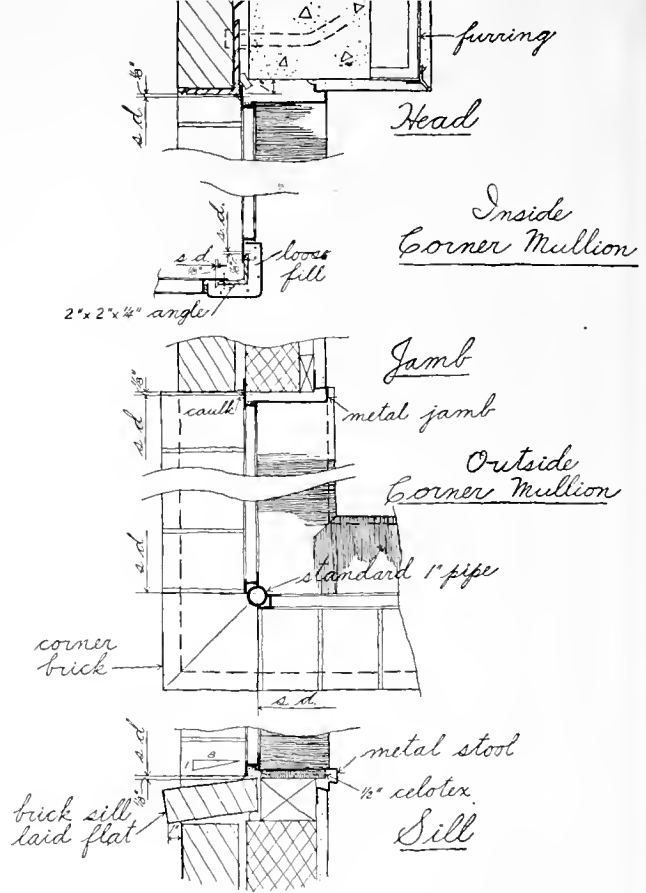 furring
1/8"
s d
Head
Inside
Corner Mullion
s.d.
s d
loose
fill
2"x 2"x 1/4" angle
Jamb
1/8"
caulk
metal jamb
s d
Outside
Corner Mullion
s d
standard 1" pipe
corner
brick
s.d.
s d
metal stool
8
1
1/8"
1/2" celotex
brick sill
laid flat
1"
Sill